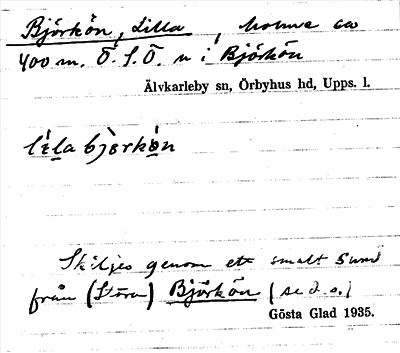 Björkön, Lilla, holme ca
400 m. Ö. S. Ö. n i Björkön
Älvkarleby sn, Örbyhus hd, Upps. l.
bjòrkö̀n
Skiljes genom ett smalt sund
från (Stora) Björkön (se d. o.)
Gösta Glad 1935.